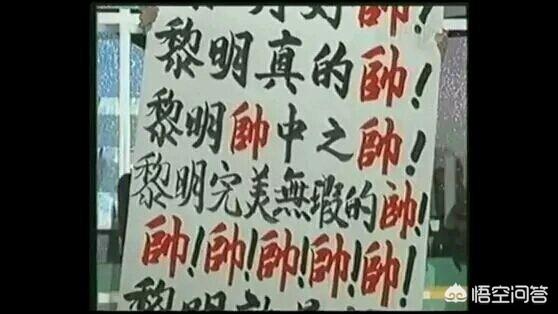 黎明真的帥!
黎明帥中之帥!
黎明完美無瑕的帥!
帥!帥!帥!帥!帥!
黎明
悟空问答